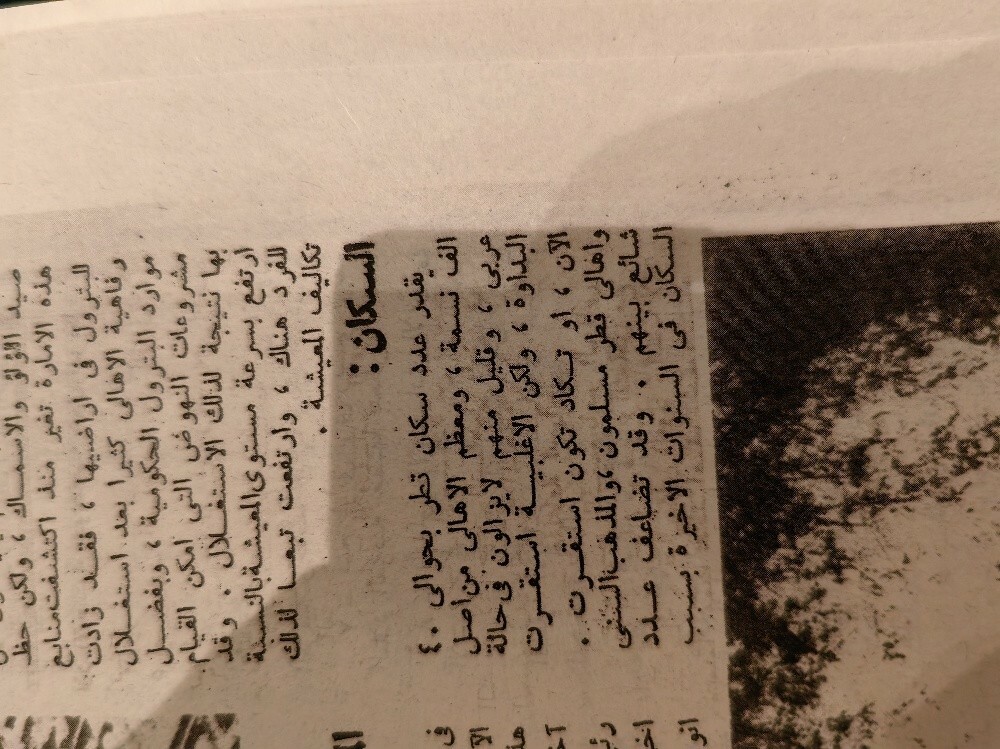 صيد اللؤلؤ والاسماك ، ولكن حظ
هذه الامارة تغير منذ اكتشفت منابع
للبترول فى اراضيها ، فقد زادت
رفاهية الاهالى كثيرا بعد استغلال
موارد البترول الحكومية ، وبفضل
مشروعات النهوض التى امكن القيام
بها نتيجة لذلك الاستغلال . وقد
ارتفع بسرعة مستوى المعيشة بالنسبة
للفرد هناك ، وارتفعت تبعا لذلك
تكاليف المعيشة .
السكان :
يقدر عدد سكان قطر بحوالى ٤٠
الف نسمة ، ومعظم الاهالى من اصل
عربى ، وقليل منهم لايزالون فى حالة
البداوة ، ولكن الاغلبية استقرت
الآن ، او تكاد تكون استقرت .
واهالى قطر مسلمون ، والمذهب السنى
شائع بينهم . وقد تضاعف عدد
السكان فى السنوات الاخيرة بسبب
فى